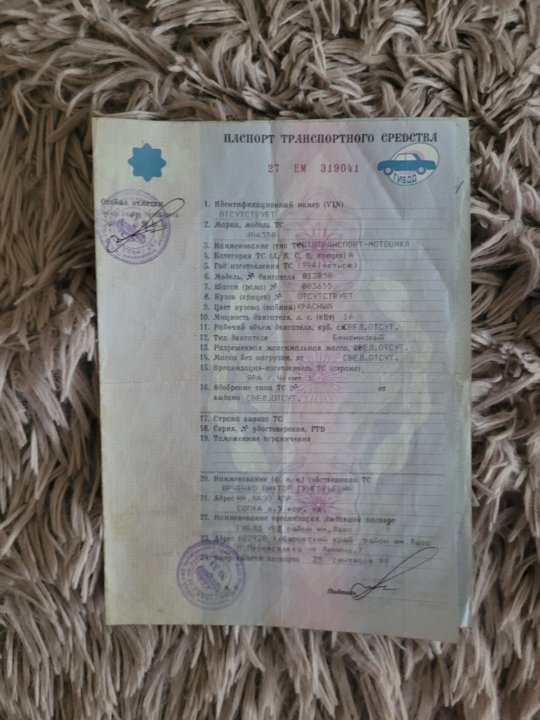 ПАСПОРТ ТРАНСПОРТНОГО СРЕДСТВА
27 ЕМ 319041
ГИБДД
Особые отметки
1. Идентификационный номер (VIN)
ОТСУТСТВУЕТ
2. Марка, модель ТС
ЯВА350
3. Наименование (тип ТС) МОТОТРАНСПОРТ-МОТОЦИКЛ
4. Категория ТС (А, В, С, D, прицеп) А
5. Год изготовления ТС
6. Модель, № двигателя 013050
7. Шасси (рама) № 003655
8. Кузов (прицеп) № ОТСУТСТВУЕТ
9. Цвет кузова (кабины) КРАСНЫЙ
10. Мощность двигателя, л. с. (кВт) 16
11. Рабочий объем двигателя, куб. см СВЕД.ОТСУТ.
12. Тип двигателя Бензиновый
13. Разрешенная максимальная масса, СВЕД.ОТСУТ.
14. Масса без нагрузки, кг СВЕД.ОТСУТ.
15. Организация-изготовитель ТС (страна)
ЯВА
16. Одобрение типа ТС № от
выдано СВЕД.ОТСУТ.
17. Страна вывоза ТС
18. Серия, № удостоверения, PTD
19. Таможенные ограничения
20. Наименование (ф. и. о.) собственника ТС
ЮРЧЕНКО ВИКТОР ГРИГОРЬЕВИЧ
21. Адрес ИМ.ЛАЗО ХОР
СОПКА д.7 кор. кв.
22. Наименование организации, выдавшей паспорт
ГИБДД УВД район им.Лазо
23. Адрес 682920 Хабаровский край район им.Лазо
24. Дата выдачи паспорта 25 сентября 99
М.П. Подпись